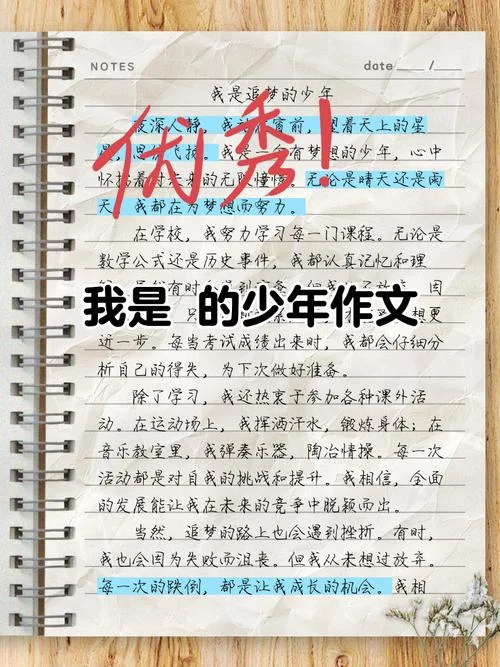 NOTES
date ____ / ____
我是追梦的少年
夜深人静，我站在窗前，望着天上的星
星，思绪飞扬。我是一个有梦想的少年，心中
怀揣着对未来的无限憧憬。无论是晴天还是雨
天，我都在为梦想而努力。
优秀！
在学校，我努力学习每一门课程。无论是
数学公式还是历史事件，我都认真记忆和理
我是 的少年作文
近一步。每当考试成绩出来时，我都会仔细分
析自己的得失，为下次做好准备。
除了学习，我还热衷于参加各种课外活
动。在运动场上，我挥洒汗水，锻炼身体；在
音乐教室里，我弹奏乐器，陶冶情操。每一次
活动都是对自我的挑战和提升。我相信，全面
的发展能让我在未来的竞争中脱颖而出。
当然，追梦的路上也会遇到挫折。有时，
我也会因为失败而沮丧。但我从未想过放弃。
每一次的跌倒，都是让我成长的机会。我相